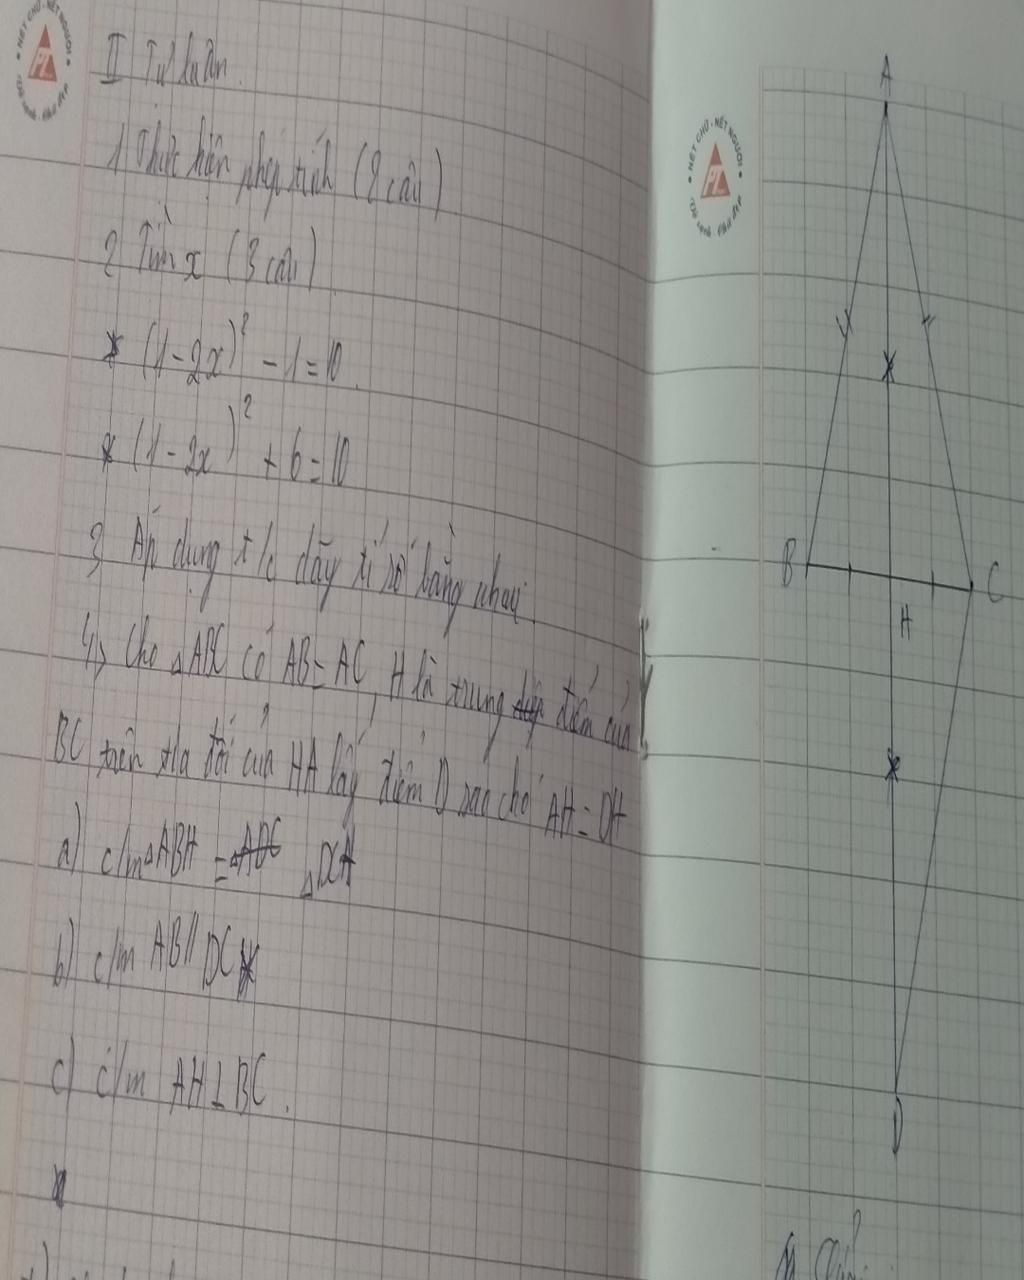 NÉT CHỮ - NẾT NGƯỜI
PL
II Tự luận.
1. Thực hiện phép tính (2 câu)
2 Tìm x (3 câu)
* (1-2x)² - 1 = 10.
* (1-2x)² + 6 = 10
3 Áp dụng t/c dãy tỉ số bằng nhau.
4, Cho △ABC có AB = AC, H là trung điểm của
BC trên tia đối của HA lấy điểm D sao cho AH = DH
a) c/m △ABH = △DCH
b) c/m AB // DC
c) c/m AH ⊥ BC.
NÉT CHỮ - NẾT NGƯỜI
PL
A
B
C
H
D